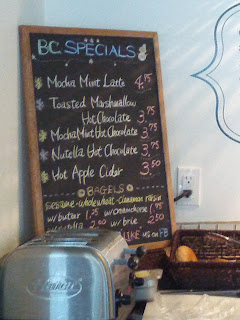 BC SPECIALS
Mocha Mint Latte 4.75
Toasted Marshmallow
Hot Chocolate 3.75
Mocha Mint Hot Chocolate 3.75
Nutella Hot Chocolate 3.75
Hot Apple Cider 3.50
BAGELS
sesame-whole wheat-cinnamon raisin
w/ butter 1.25 w/ cream cheese 1.95
w/ nutella 2.50 w/ brie 2.50
'LIKE' us on FB